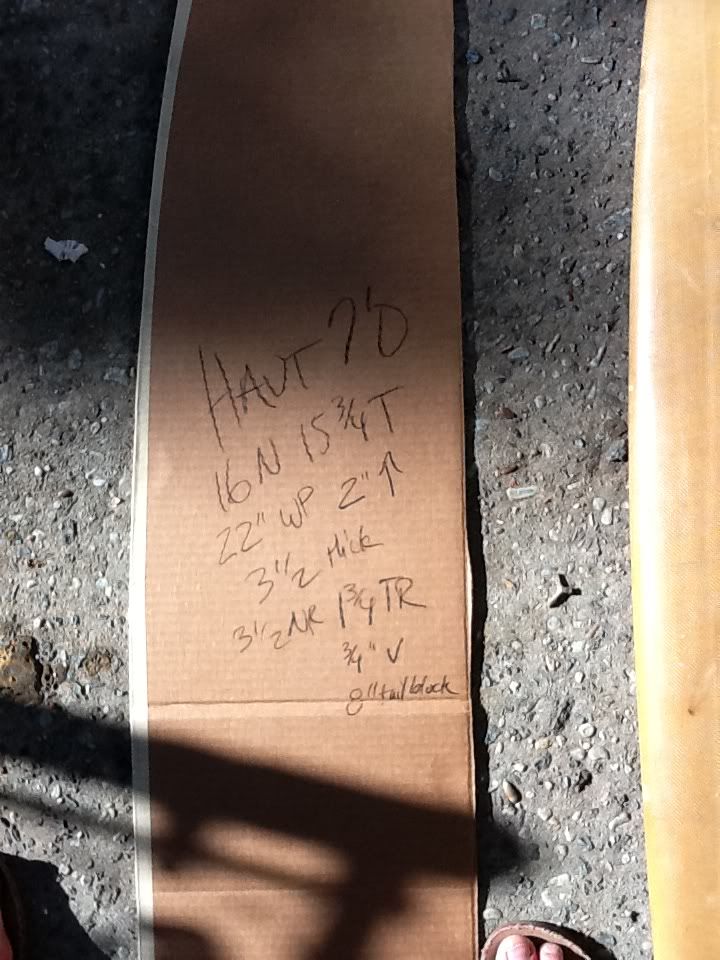 HAUT 7'0
16 N 15 3/4 T
22" WP 2" ↑
3 1/2" thick
3 1/2 NR 1 3/4 TR
3/4" V
8" tail block